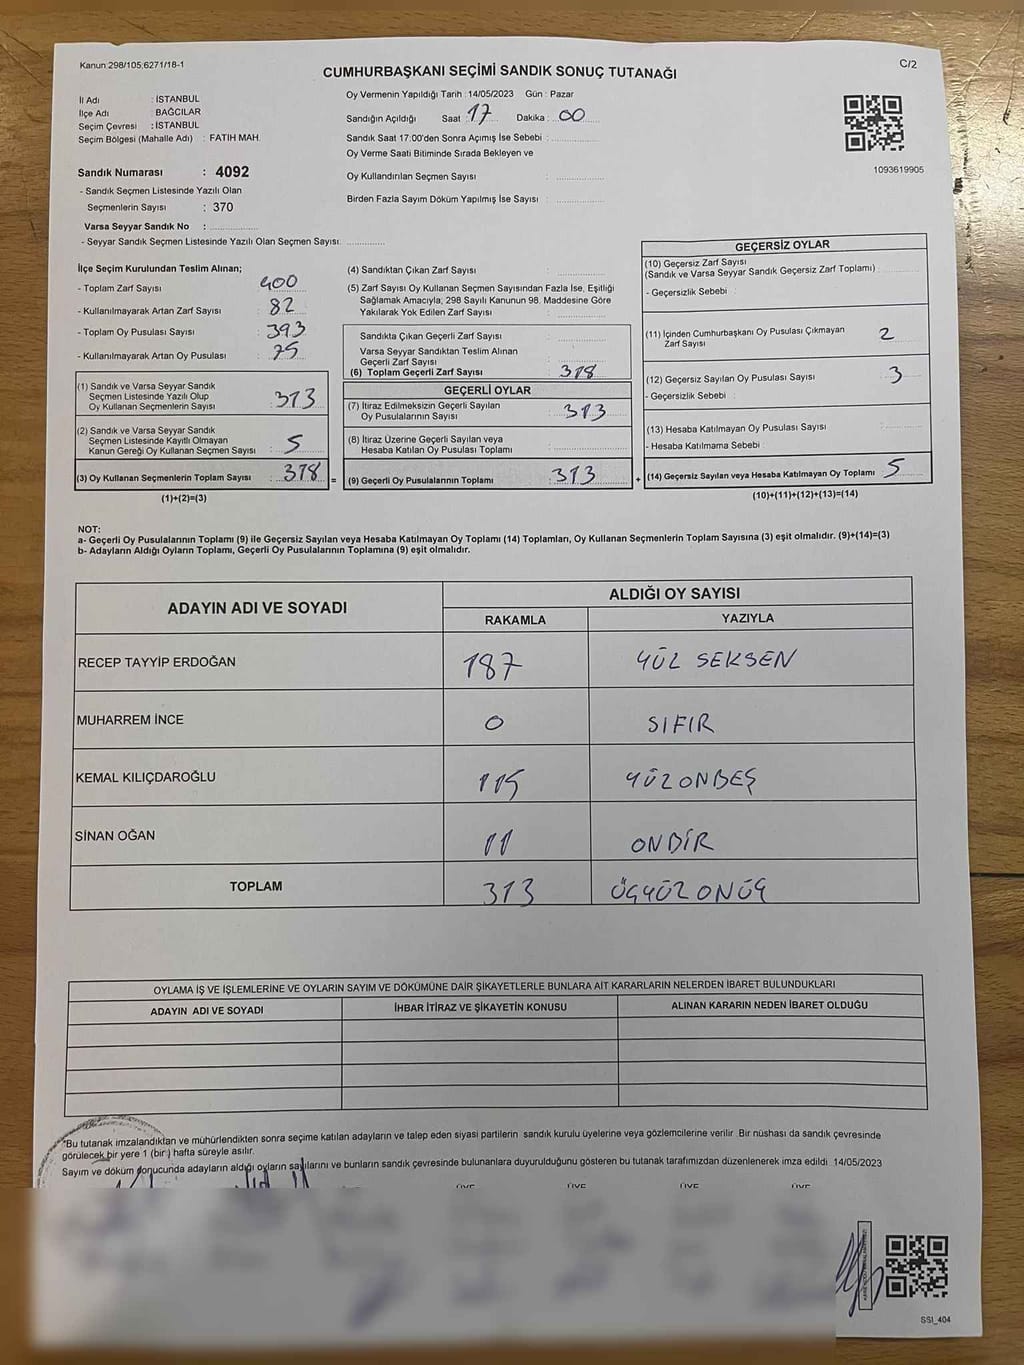 Kanun 298/105,6271/18-1
C/2
CUMHURBAŞKANI SEÇİMİ SANDIK SONUÇ TUTANAĞI
İl Adı : İSTANBUL
İlçe Adı : BAĞCILAR
Seçim Çevresi : İSTANBUL
Seçim Bölgesi (Mahalle Adı) : FATIH MAH.
Sandık Numarası : 4092
- Sandık Seçmen Listesinde Yazılı Olan
Seçmenlerin Sayısı : 370
Varsa Seyyar Sandık No :
- Seyyar Sandık Seçmen Listesinde Yazılı Olan Seçmen Sayısı.
Oy Vermenin Yapıldığı Tarih : 14/05/2023 Gün : Pazar
Sandığın Açıldığı Saat : 17 Dakika : 00
Sandık Saat 17:00'den Sonra Açımış İse Sebebi :
Oy Verme Saati Bitiminde Sırada Bekleyen ve
Oy Kullandırılan Seçmen Sayısı :
Birden Fazla Sayım Döküm Yapılmış İse Sayısı :
1093619905
İlçe Seçim Kurulundan Teslim Alınan;
- Toplam Zarf Sayısı : 400
- Kullanılmayarak Artan Zarf Sayısı : 82
- Toplam Oy Pusulası Sayısı : 393
- Kullanılmayarak Artan Oy Pusulası : 75
(1) Sandık ve Varsa Seyyar Sandık
Seçmen Listesinde Yazılı Olup
Oy Kullanan Seçmenlerin Sayısı : 313
(2) Sandık ve Varsa Seyyar Sandık
Seçmen Listesinde Kayıtlı Olmayan
Kanun Gereği Oy Kullanan Seçmen Sayısı : 5
(3) Oy Kullanan Seçmenlerin Toplam Sayısı : 318 =
(1)+(2)=(3)
(4) Sandıktan Çıkan Zarf Sayısı :
(5) Zarf Sayısı Oy Kullanan Seçmen Sayısından Fazla İse, Eşitliği
Sağlamak Amacıyla, 298 Sayılı Kanunun 98. Maddesine Göre
Yakılarak Yok Edilen Zarf Sayısı :
Sandıkta Çıkan Geçerli Zarf Sayısı :
Varsa Seyyar Sandıktan Teslim Alınan
Geçerli Zarf Sayısı :
(6) Toplam Geçerli Zarf Sayısı : 318
GEÇERLİ OYLAR
(7) İtiraz Edilmeksizin Geçerli Sayılan
Oy Pusulalarının Sayısı : 313
(8) İtiraz Üzerine Geçerli Sayılan veya
Hesaba Katılan Oy Pusulası Toplamı :
(9) Geçerli Oy Pusulalarının Toplamı : 313 +
GEÇERSİZ OYLAR
(10) Geçersiz Zarf Sayısı
(Sandık ve Varsa Seyyar Sandık Geçersiz Zarf Toplamı) :
- Geçersizlik Sebebi :
(11) İçinden Cumhurbaşkanı Oy Pusulası Çıkmayan
Zarf Sayısı : 2
(12) Geçersiz Sayılan Oy Pusulası Sayısı : 3
- Geçersizlik Sebebi :
(13) Hesaba Katılmayan Oy Pusulası Sayısı :
- Hesaba Katılmama Sebebi :
(14) Geçersiz Sayılan veya Hesaba Katılmayan Oy Toplamı : 5
(10)+(11)+(12)+(13)=(14)
NOT:
a- Geçerli Oy Pusulalarının Toplamı (9) ile Geçersiz Sayılan veya Hesaba Katılmayan Oy Toplamı (14) Toplamları, Oy Kullanan Seçmenlerin Toplam Sayısına (3) eşit olmalıdır. (9)+(14)=(3)
b- Adayların Aldığı Oyların Toplamı, Geçerli Oy Pusulalarının Toplamına (9) eşit olmalıdır.
ADAYIN ADI VE SOYADI
ALDIĞI OY SAYISI
RAKAMLA YAZIYLA
RECEP TAYYİP ERDOĞAN 187 YÜZ SEKSEN
MUHARREM İNCE 0 SIFIR
KEMAL KILIÇDAROĞLU 115 YÜZONBEŞ
SİNAN OĞAN 11 ONBİR
TOPLAM 313 ÜÇYÜZONÜÇ
OYLAMA İŞ VE İŞLEMLERİNE VE OYLARIN SAYIM VE DÖKÜMÜNE DAİR ŞİKAYETLERLE BUNLARA AİT KARARLARIN NELERDEN İBARET BULUNDUKLARI
ADAYIN ADI VE SOYADI İHBAR İTİRAZ VE ŞİKAYETİN KONUSU ALINAN KARARIN NEDEN İBARET OLDUĞU
*Bu tutanak imzalandıktan ve mühürlendikten sonra seçime katılan adayların ve talep eden siyasi partilerin sandık kurulu üyelerine veya gözlemcilerine verilir .Bir nüshası da sandık çevresinde
görülecek bir yere 1 (bir ) hafta süreyle asılır.
Sayım ve döküm sonucunda adayların aldığı oyların sayılarını ve bunların sandık çevresinde bulunanlara duyurulduğunu gösteren bu tutanak tarafımızdan düzenlenerek imza edildi 14/05/2023
ÜYE ÜYE ÜYE ÜYE
SSI_404